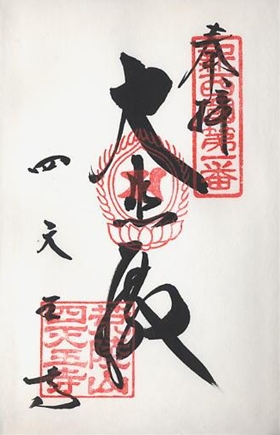 奉拝
新西国第一番
大悲殿
四天王寺
荒陵山
四天王寺